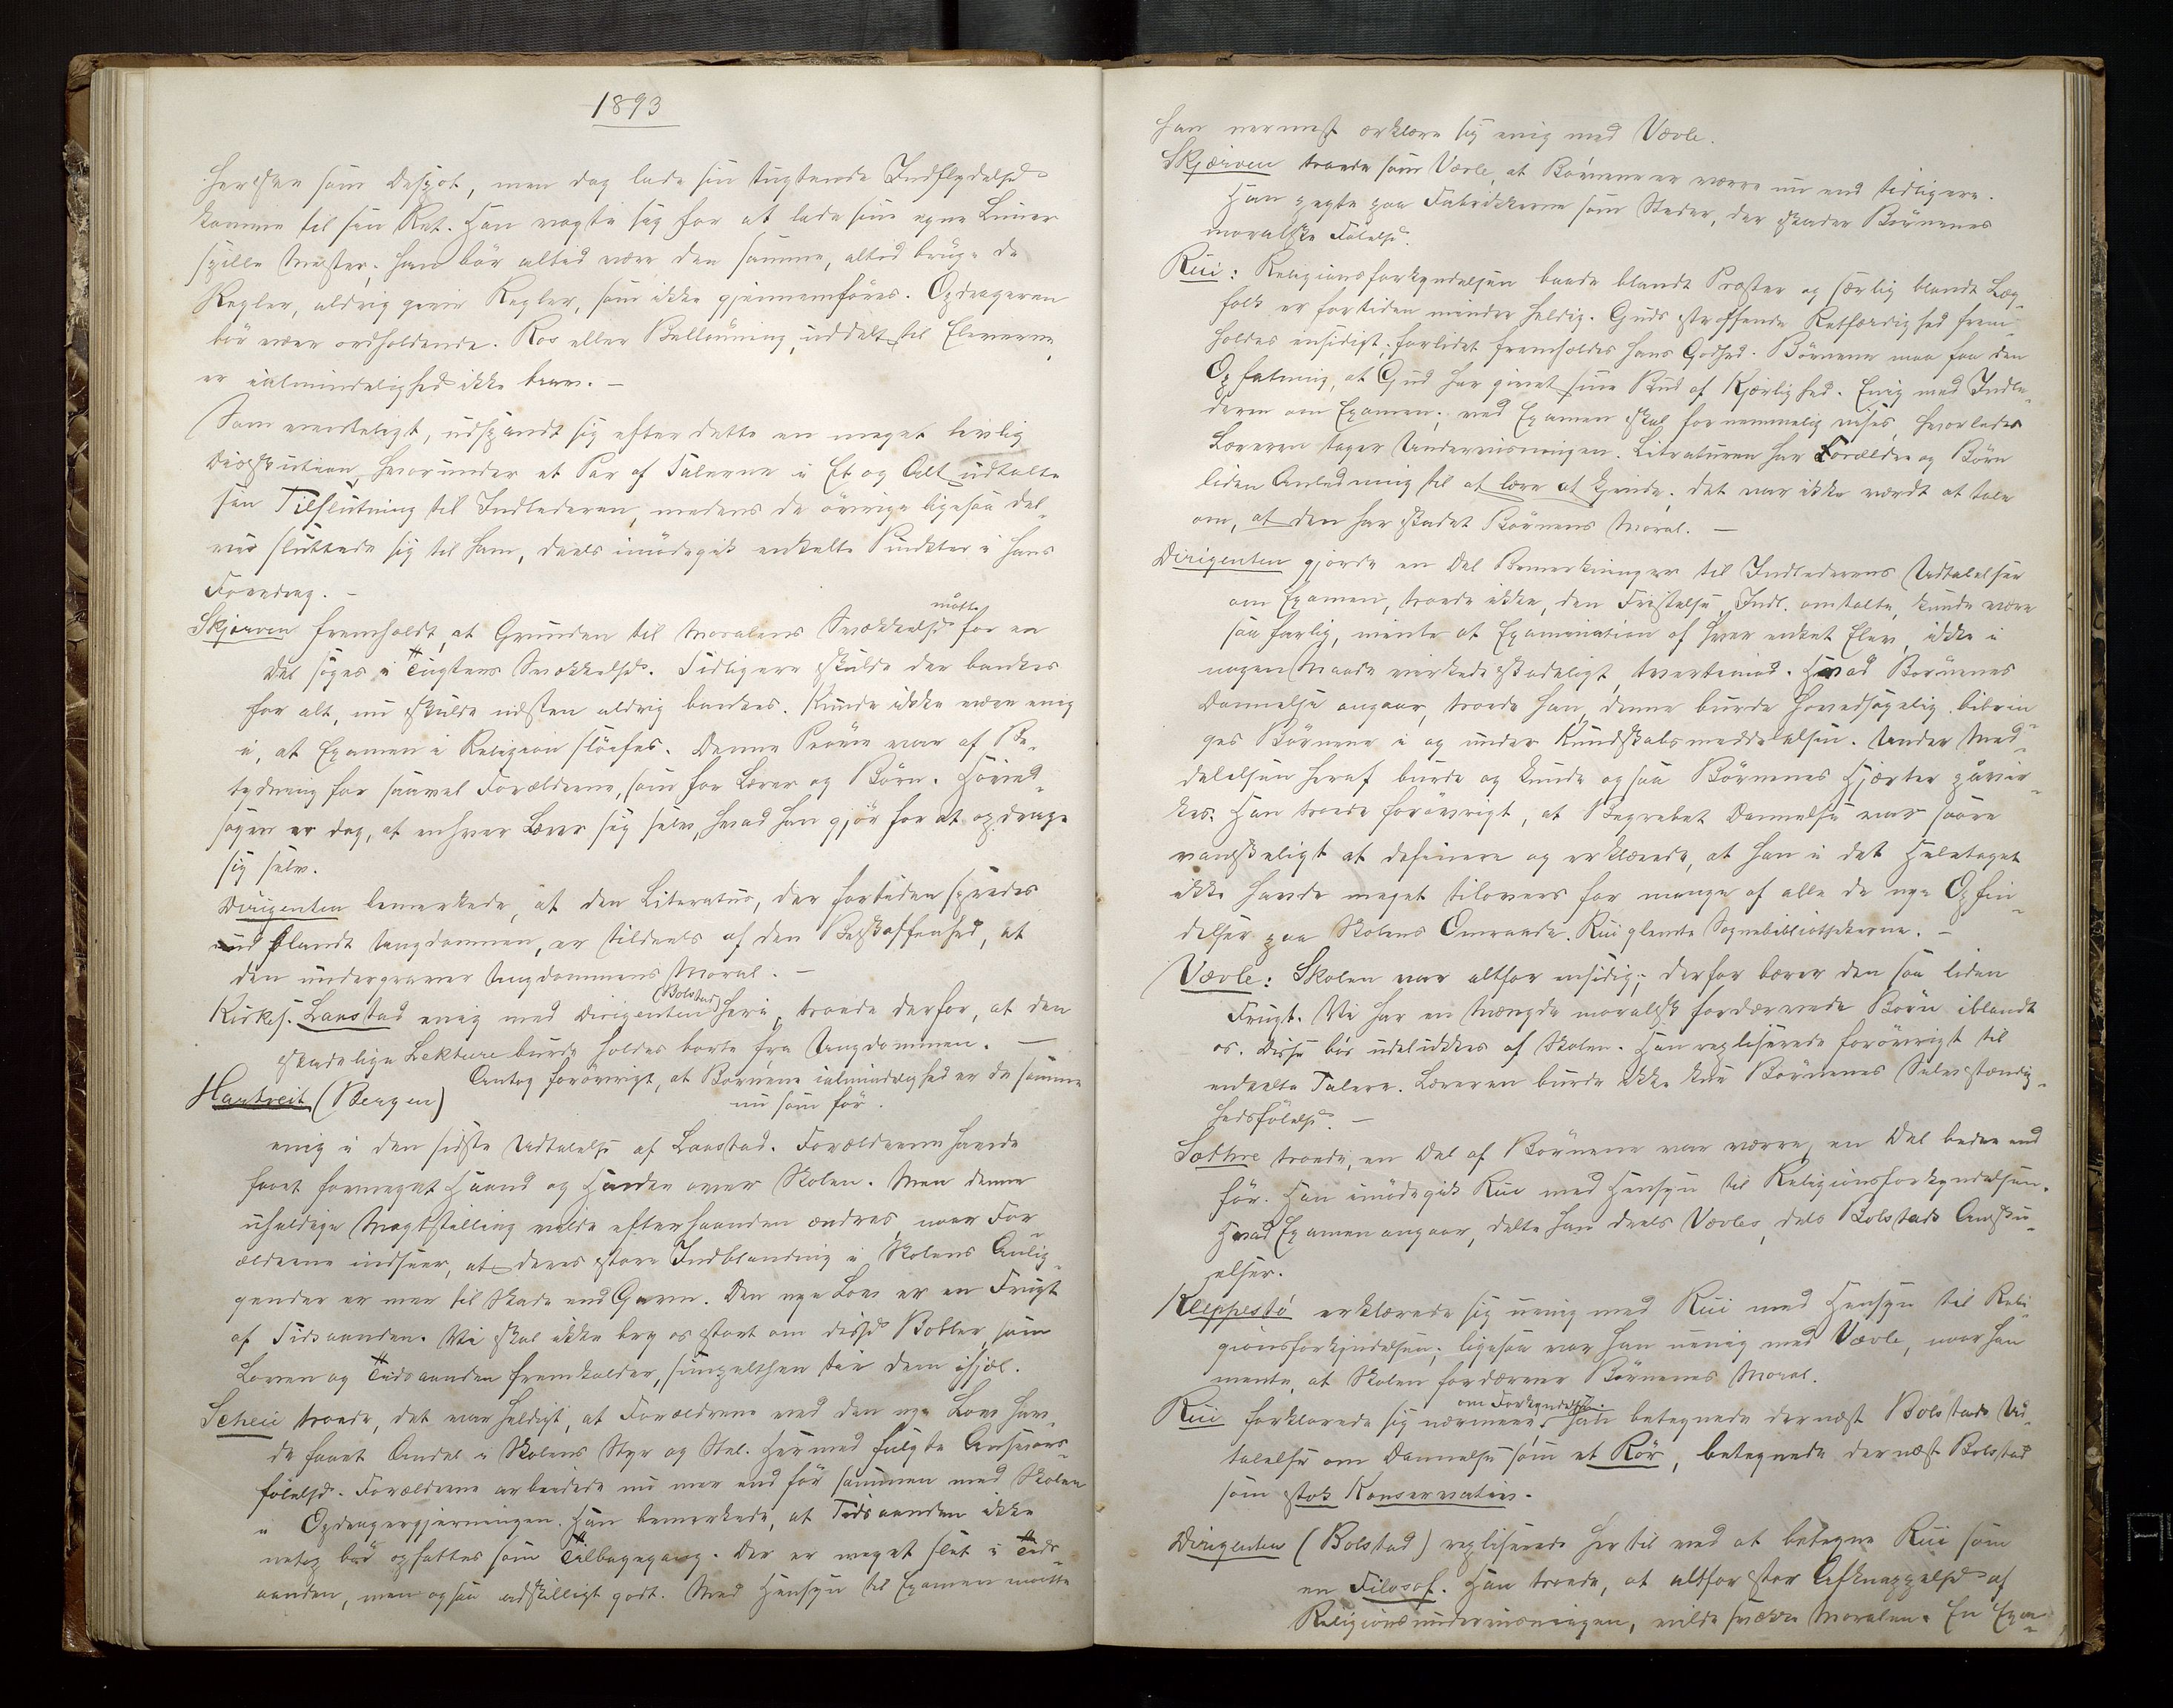 1893
herske som Despot, men dog lade sin tugtende Indflydelse
komme til sin Ret. Han vogte sig for at lade sine egne Luner
spille Mester; han bør altid være den samme, altid bruge de
Regler, aldrig give Regler, som ikke gjennemføres. Opdrageren
bør være ordholdende. Ros eller Bellønning, uddelt til Eleverne,
er ialmindelighed ikke bra. —
Som rimeligt, udspandt sig efter dette en meget livlig
Diskution, hvorunder et Par af Talerne i Et og Alt udtalte
sin Tilslutning til Indlederen, medens de øvrige ligesaa del-
vis sluttede sig til ham, deels imødegik enkelte Punkter i hans
Foredrag. —
Skjerven fremholdt, at Grunden til Moralens Svækkelse måtte for en
Del søges i Tugtens Svækkelse. Tidligere skulde der bankes
for alt, nu skulde næsten aldrig bankes. Kunde ikke være enig
i, at Examen i Religion sløifes. Denne Prøve var af Be-
tydning for saavel Forældrene, som for Lærer og Børn. Hoved-
sagen er dog, at enhver Lærer sig selv, hvad han gjør for at opdrage
sig selv.
Dirigenten bemerkede, at den Literatur, der fortiden spredes
ud blandt Ungdommen, er tildeels af den Beskaffenhed, at
den undergraver Ungdommens Moral. —
Kirkes. Laastad enig med Dirigenten (Bolstad) heri, troede derfor, at den
skadelige Lekture burde holdes borte fra Ungdommen. —
Antog forøvrigt, at Børnene ialmindelighed er de samme
nu som før.
Hartveit (Bergen)
enig i den sidste Udtalelse af Laastad. Forældrene havde
faaet formeget Haand og Hævde over Skolen. Men denne
uheldige Magtstilling vilde efterhaanden ændres, naar For-
ældrene indseer, at deres store Indblanding i Skolens Anlig-
gender er mer til Skade end Gavn. Den nye Lov er en Frugt
af Tidsaanden. Vi skal ikke bry os stort om disse Bobler, som
Loven og Tidsaanden fremkalder, simpelthen tie dem ihjel.
Scheie troede, det var heldigt, at Forældrene med den nye Lov hav-
de faaet Andel i Skolens Styr og Stel. Hermed fulgte Ansvars-
følelse. Forældrene arbeidede nu mer end før sammen med Skolen
i Opdragergjerningen. Han bemerkede, at Tidsaanden ikke
netop bør opfattes som Tilbagegang. Der er meget slet i Tids-
aanden, men ogsaa adskilligt godt. Med Hensyn til Examen maatte
han nermest erklære sig enig med Vævle.
Skjærven troede som Vævle, at Børnene er værre nu end tidligere.
Han pegte paa Fabrikkerne som Steder, der skader Børnenes
moralske Følelse.
Rui: Religionsforkyndelsen baade blandt Præster og særlig blandt Læg-
folk er fortiden minder heldig. Guds straffende Retfærdighed frem-
holdes ensidigt; forlidet fremholdes hans Godhed. Børnene maa faa den
Opfatning, at Gud har givet sine Bud af Kjærlighed. Enig med Indle-
deren om Examen; ved Examen skal fornemmelig vises, hvorledes
Læreren tager Undervisningen. Literaturen har Forældre og Børn
liden Anledning til at lære at kjende; det var ikke værdt at tale
om, at den har skadet Børnens Moral. —
Dirigenten gjorde en Del Bemerkninger til Indlederens Udtalelser
om Examen, troede ikke, den Fristelse, Indl. omtalte, kunde være
saa farlig, mente at Examination af hver enkelt Elev, ikke i
nogen Maade virkede skadeligt, tvertimod. Hvad Børnenes
Dannelse angaar, troede han, denne burde hovedsagelig bibrin-
ges Børnene i og under Kundskabsmeddelelsen. Under Med-
delelsen heraf burde og kunde ogsaa Børnenes Hjærter påvir-
kes. Han troede forøvrigt, at Begrebet Dannelse var svære
vanskeligt at definere og erklærede, at han i det Heletaget
ikke havde meget tilovers for mange af alle de nye Opfin-
delser paa Skolens Omraade. Rui glemte Sognebibliothekerne. —
Vævle: Skolen var altfor ensidig; derfor bærer den saa liden
Frugt. Vi har en Mængde moralsk fordærvede Børn iblandt
os. Disse bør udelukkes af Skolen. Han repliserede forøvrigt til
enkelte Talere. Læreren burde ikke kue Børnenes Selvstændig-
hedsfølelse. —
Sæthre troede, en Del af Børnene var værre, en Del bedre end
før. Han imødegik Rui med Hensyn til Religionsforkyndelsen.
Hvad Examen angaar, delte han deels Vævles, dels Bolstads Ansku-
elser.
Kleppestö erklærede sig uenig med Rui med Hensyn til Reli-
gionsforkyndelsen; ligesaa var han uenig med Vævle, naar han
mente, at Skolen fordærver Børnenes Moral.
Rui forklarede sig nærmere om Forkyndelsen. Han betegnede dernæst Bolstads Ud-
talelse om Dannelse som et Rør, betegnede dernæst Bolstad
som stok Konservativ.
Dirigenten (Bolstad) repliserede hertil med at betegne Rui som
en Filosof. Han troede, at altfor stor Afknappelse af
Religionsundervisningen, vilde svække Moralen. En Exa-